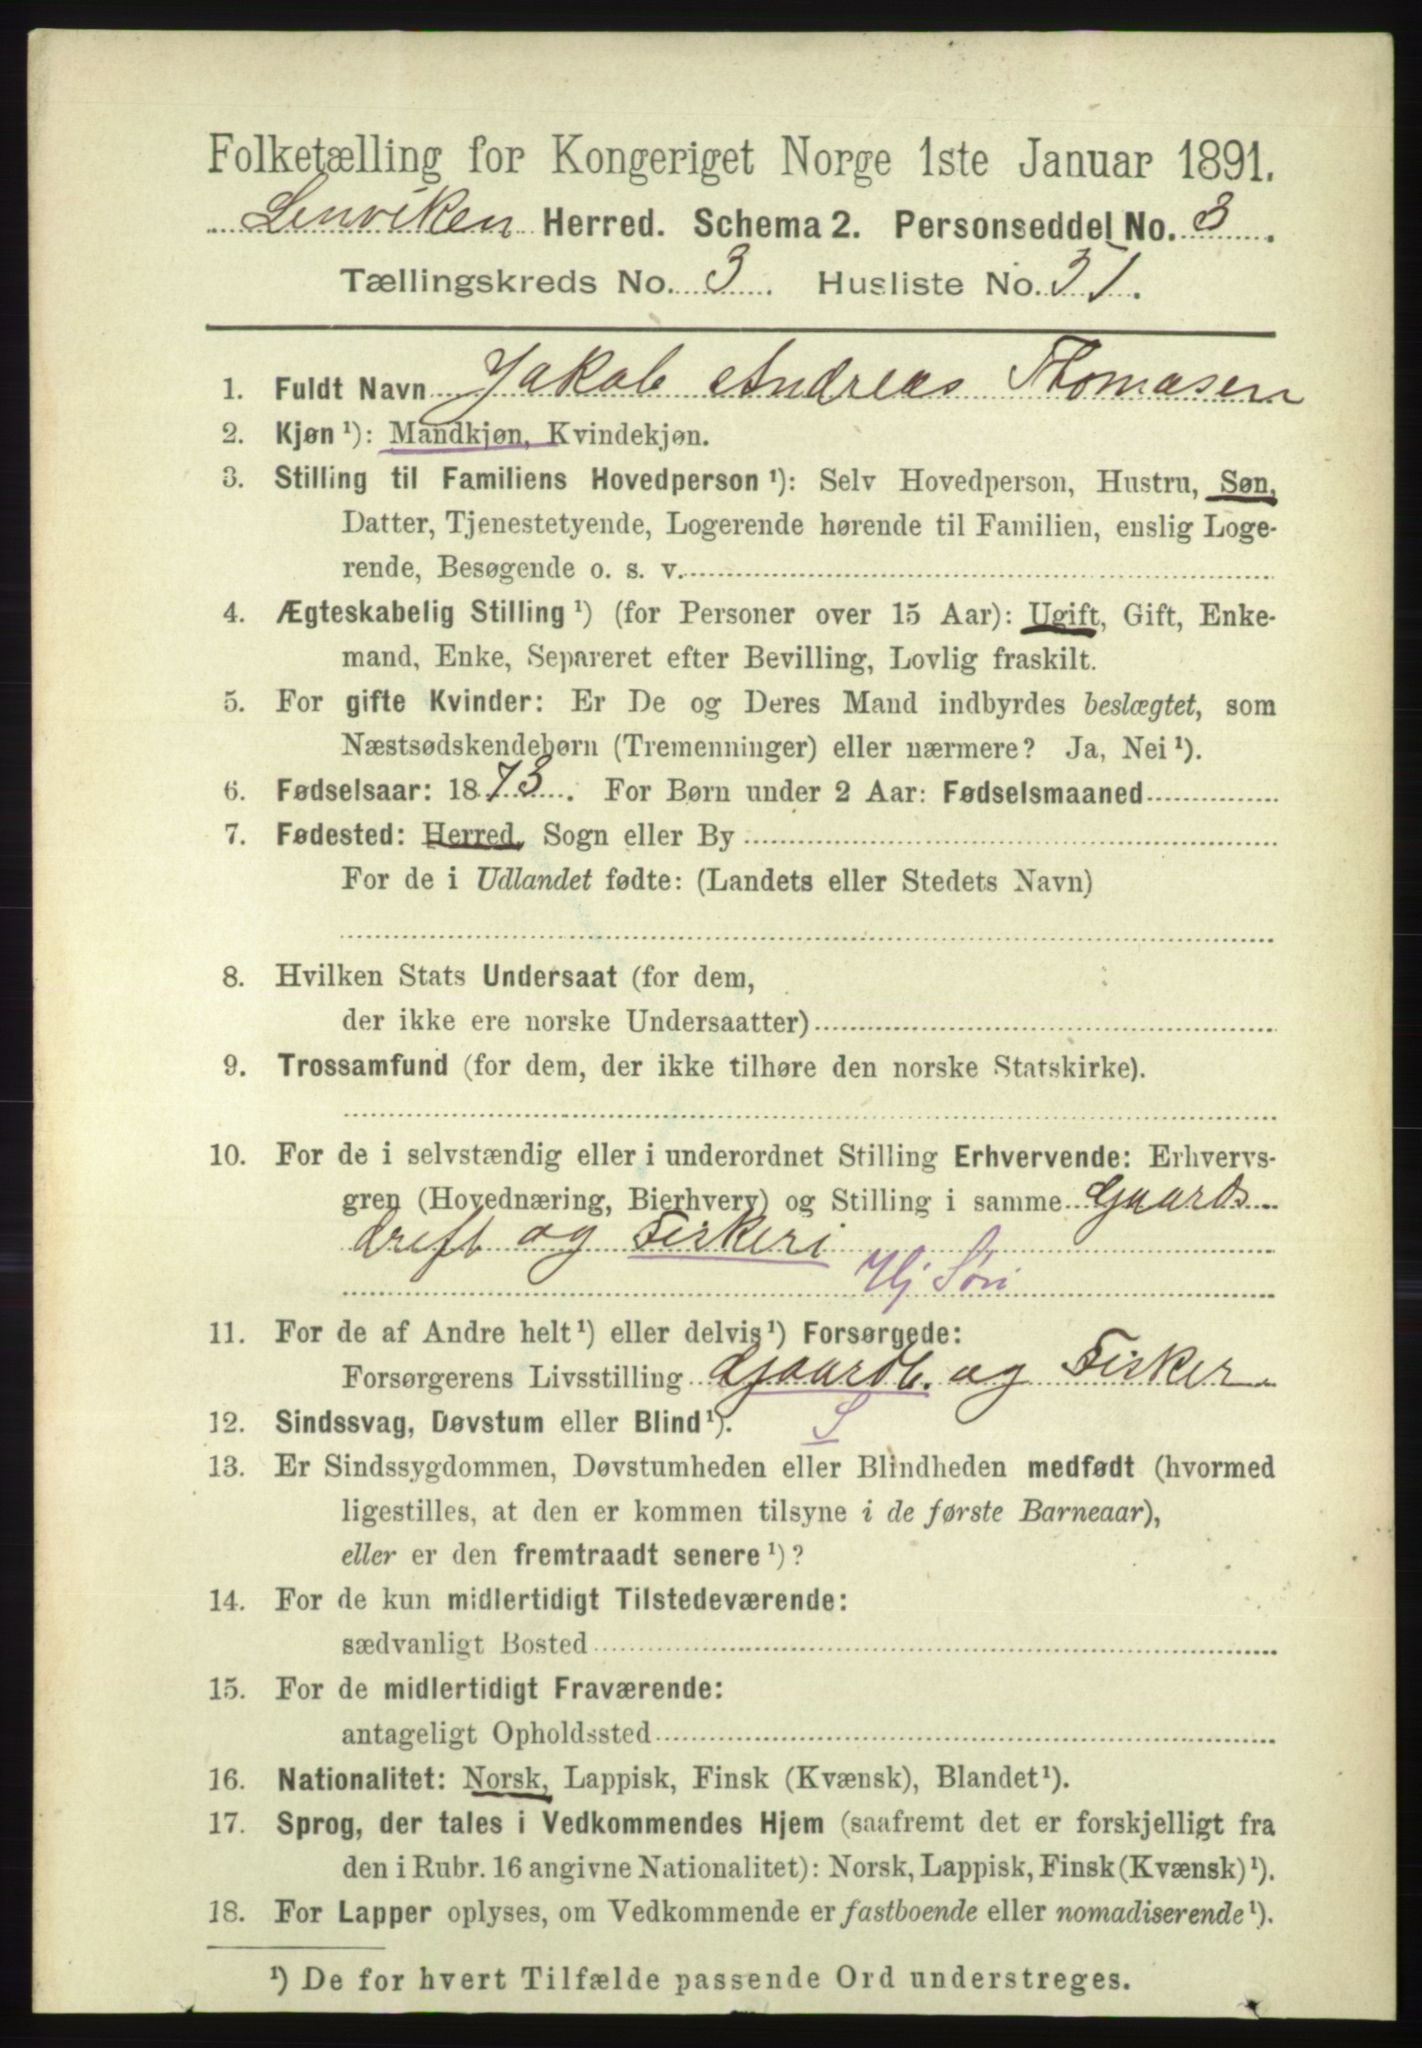 Folketælling for Kongeriget Norge 1ste Januar 1891.
Lenviken Herred. Schema 2. Personseddel No. 3.
Tællingskreds No. 3. Husliste No. 31.
1. Fuldt Navn Jakob Andreas Thomasen
2. Kjøn ¹): Mandkjøn, Kvindekjøn.
3. Stilling til Familiens Hovedperson ¹): Selv Hovedperson, Hustru, Søn,
Datter, Tjenestetyende, Logerende hørende til Familien, enslig Loge-
rende, Besøgende o. s. v.
4. Ægteskabelig Stilling ¹) (for Personer over 15 Aar): Ugift, Gift, Enke-
mand, Enke, Separeret efter Bevilling, Lovlig fraskilt.
5. For gifte Kvinder: Er De og Deres Mand indbyrdes beslægtet, som
Næstsødskendebørn (Tremenninger) eller nærmere? Ja, Nei ¹).
6. Fødselsaar: 1873. For Børn under 2 Aar: Fødselsmaaned
7. Fødested: Herred, Sogn eller By
For de i Udlandet fødte: (Landets eller Stedets Navn)
8. Hvilken Stats Undersaat (for dem,
der ikke ere norske Undersaatter)
9. Trossamfund (for dem, der ikke tilhøre den norske Statskirke).
10. For de i selvstændig eller i underordnet Stilling Erhvervende: Erhvervs-
gren (Hovednæring, Bierhverv) og Stilling i samme Gaards
dreft og Fiskeri
Hj Søn
11. For de af Andre helt ¹) eller delvis ¹) Forsørgede:
Forsørgerens Livsstilling Gaardb. og Fisker
12. Sindssvag, Døvstum eller Blind ¹). S
13. Er Sindssygdommen, Døvstumheden eller Blindheden medfødt (hvormed
ligestilles, at den er kommen tilsyne i de første Barneaar),
eller er den fremtraadt senere ¹)?
14. For de kun midlertidigt Tilstedeværende:
sædvanligt Bosted
15. For de midlertidigt Fraværende:
antageligt Opholdssted
16. Nationalitet: Norsk, Lappisk, Finsk (Kvænsk), Blandet ¹).
17. Sprog, der tales i Vedkommendes Hjem (saafremt det er forskjelligt fra
den i Rubr. 16 angivne Nationalitet): Norsk, Lappisk, Finsk (Kvænsk) ¹).
18. For Lapper oplyses, om Vedkommende er fastboende eller nomadiserende ¹).
¹) De for hvert Tilfælde passende Ord understreges.